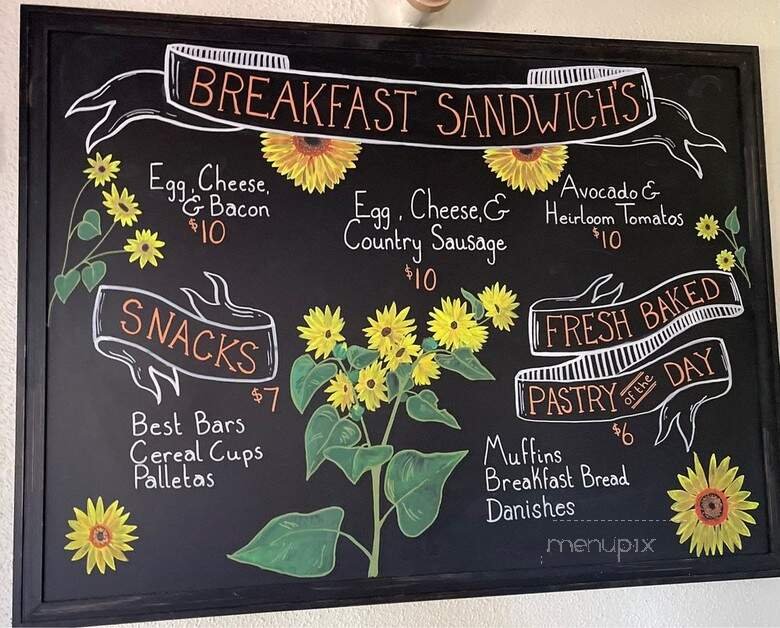 BREAKFAST SANDWICH'S
Egg, Cheese,
& Bacon
$10
Egg, Cheese, &
Country Sausage
$10
Avocado &
Heirloom Tomatos
$10
SNACKS
$7
Best Bars
Cereal Cups
Palletas
FRESH BAKED
PASTRY of the DAY
$6
Muffins
Breakfast Bread
Danishes
menupix